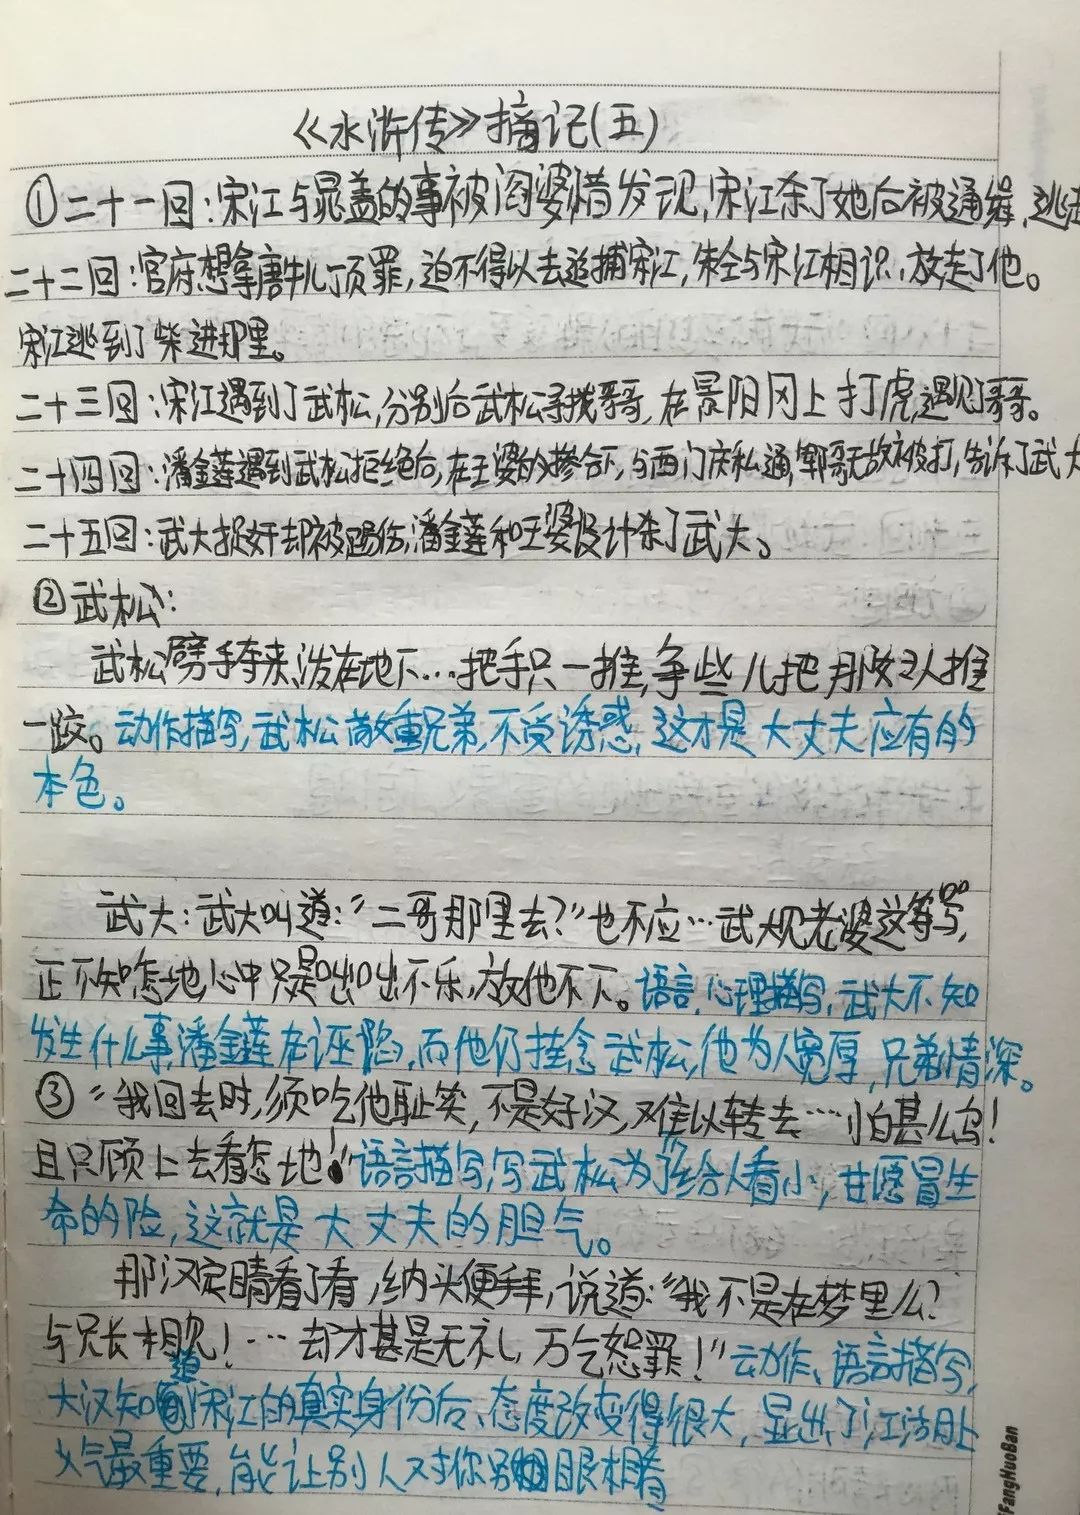 《水浒传》摘记(五)
①二十一回:宋江与晁盖的事被阎婆惜发现,宋江杀了她后被通缉,逃走
二十二回:官府想拿唐牛儿顶罪,迫不得以去追捕宋江,朱仝与宋江相识,放走了他。
宋江逃到了柴进那里。
二十三回:宋江遇到了武松,分别后武松寻找哥哥,在景阳冈上打虎,遇见了哥哥。
二十四回:潘金莲遇到武松拒绝后,在王婆的掺合下,与西门庆私通,郓哥无故被打,告诉了武大
二十五回:武大捉奸却被踢伤,潘金莲和王婆设计杀了武大。
②武松:
武松劈手夺来,泼在地下…把手只一推,争些儿把那妇人推
一跤。动作描写,武松敬重兄弟,不受诱惑,这才是大丈夫应有的
本色。
武大:武大叫道:“二哥那里去?”也不应…武大见老婆这等骂,
正不知怎地,心中只是咄咄不乐,放他不下。语言、心理描写,武大不知
发生什么事,潘金莲在诬陷,而他仍挂念武松,他为人宽厚,兄弟情深。
③“我回去时,须吃他耻笑,不是好汉,难以转去…怕甚么鸟!
且只顾上去看怎地!”语言描写,写武松为了不给人看小,甘愿冒生
命的险,这就是大丈夫的胆气。
那汉定睛看了看,纳头便拜,说道:“我不是在梦里么?
与兄长相见!…却才甚是无礼,万乞恕罪!”动作、语言描写,
大汉知道宋江的真实身份后,态度改变得很大,显出了江湖上
义气最重要,能让别人对你另眼相看
FangHuoBan